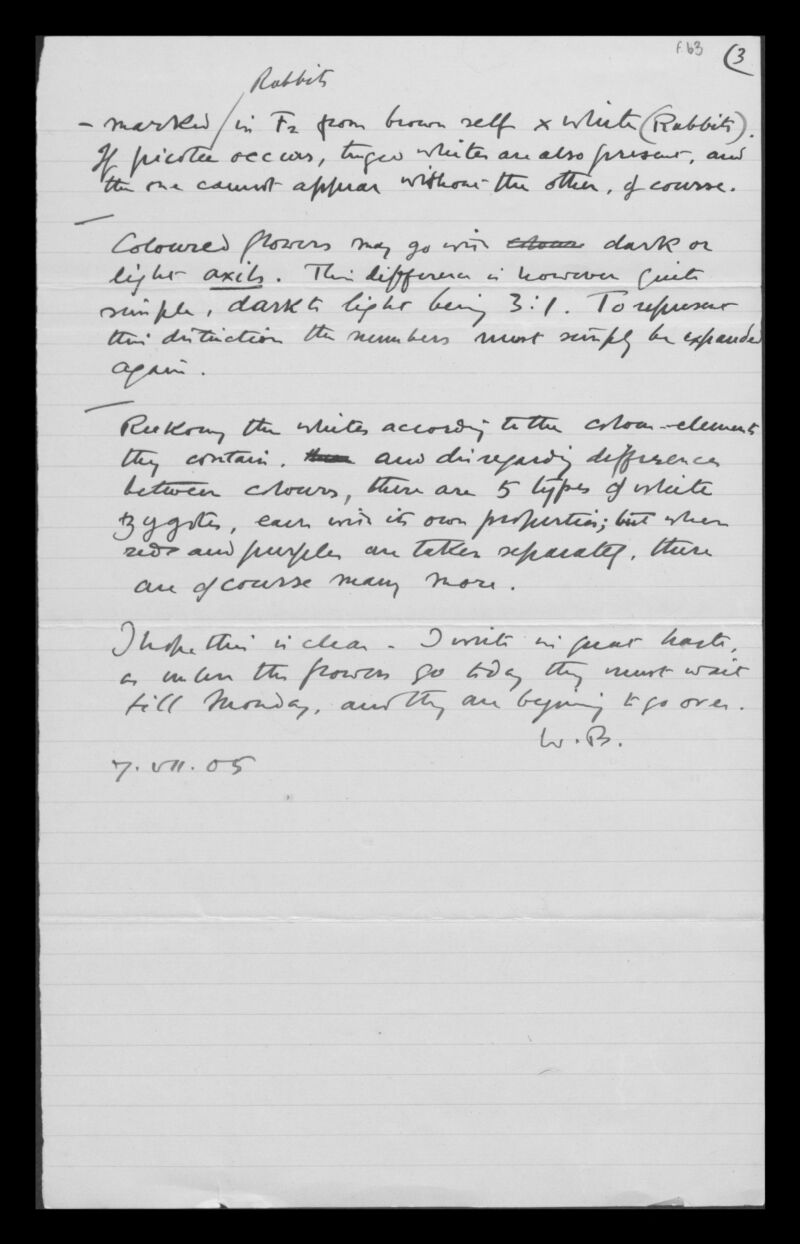 f.63 (3
Rabbits
- marked / in F2 from brown self x white (Rabbits).
If picotee occurs, tinged whites are also present, and
the one cannot appear without the other, of course.
Coloured flowers may go with colour dark or
light axils. This difference is however quite
simple, dark to light being 3:1. To represent
this distinction the numbers must simply be expanded
again.
Reckoning the whites according to the colour-elements
they contain, and disregarding differences
between colours, there are 5 types of white
zygotes, each with its own properties; but when
reds and purples are taken separately, there
are of course many more.
I hope this is clear - I write in great haste,
as unless the flowers go today they must wait
till Monday, and they are beginning to go over.
W.B.
7.VII.05